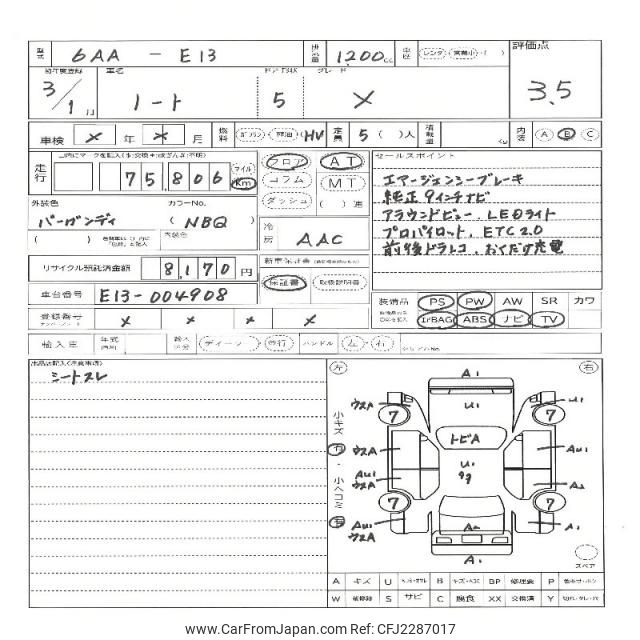 型式 6AA - E13 排気量 1,200cc 車歴 レンタ 営業小 ( ) 評価点
初年度登録 車名 ドア形状 グレード
3/1月 ノート 5 × 3.5
車検 × 年 × 月 燃料 ガソリン 軽油 HV 定員 5( )人 積載量 内装 A B C
走行 75,806 マイル Km フロア AT セールスポイント
コラム MT エマージェンシーブレーキ
ダッシュ ( )速 純正9インチナビ
外装色 カラーNo. アラウンドビュー、LEDライト
バーガンディ (NBQ) 冷房 AAC プロパイロット、ETC2.0
( ) 内装色 前後ドラレコ、おくだけ充電
リサイクル預託済金額 8,170円 新車保証書
保証書 取扱説明書
車台番号 E13-004908 装備品 PS PW AW SR カワ
登録番号 × × × × AirBAG ABS ナビ TV
輸入車 年式 輸入区分 ディーラー 並行 ハンドル 左 右
シートスレ
左 右
小キズ 有・小ヘコミ 有
A1
U1
ウスA U1
7 7
トビA
ウスA AU1
U1
AU1
ウスA A2
7 7
AU1
ウスA A2 A1
A1
スペア
A キズ U B キズ・ヘコミ BP 修理要 P
W 補修跡 S サビ C 腐食 XX 交換済 Y
www.CarFromJapan.com - CFJ2287017